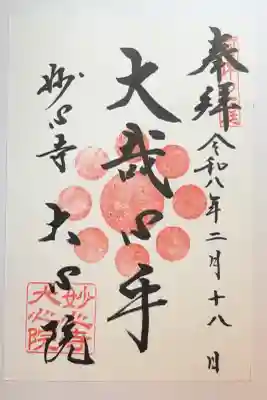 奉拝
令和八年二月十八日
大哉心乎
妙心寺 大心院
妙心寺
大心院